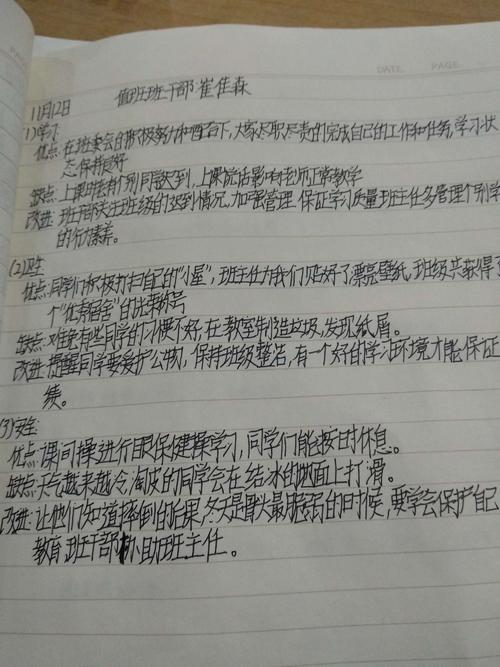 DATE PAGE
11月12日 值班班干部:崔佳森
(1)学习:
优点:在班委会的积极努力和配合下,大家尽职尽责的完成自己的工作和任务,学习状
态保持良好
缺点:上课时有个别同学迟到,上课说话影响老师正常教学
改进:班干部关注班级的迟到情况,加强管理 保证学习质量班主任多管理个别学
的行为素养。
(2)卫生
优点:同学们积极打扫自己的“小屋”,班主任为我们贴好了漂亮壁纸,班级共获得了
个“优秀宿舍”的光荣称号
缺点:难免有些同学的习惯不好,在教室制造垃圾,发现纸屑。
改进:提醒同学要爱护公物,保持班级整洁,有一个好的学习环境才能保证
续。
(3)安全
优点:课间操进行眼保健操学习,同学们能按时休息。
缺点:天气越来越冷,淘皮的同学会在结冰的地面上打滑。
改进:让他们知道摔倒的后果,冬天是骨头最脆弱的时候,要学会保护自
教育 班干部协助班主任。